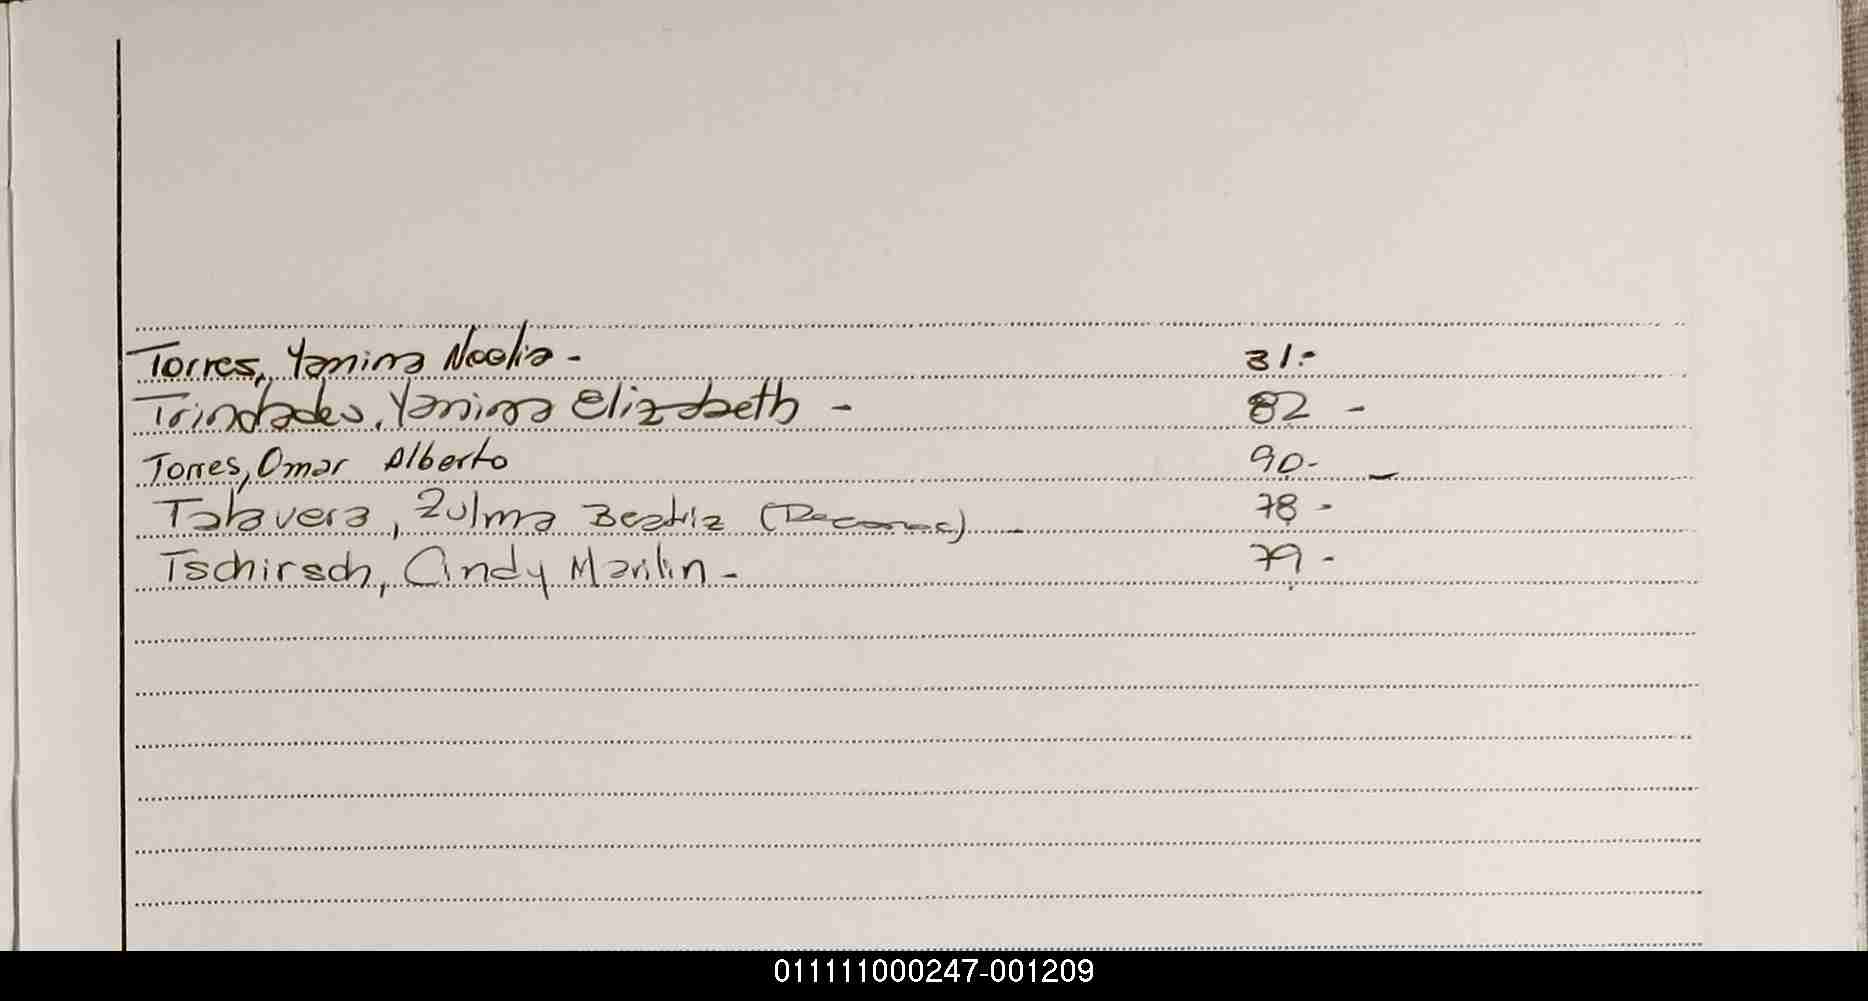 Torres, Yanina Noelia - 31.-
Trindades, Yanina Elizabeth - 82 -
Torres, Omar Alberto 90.- -
Talavera, Zulma Beatriz 78 -
Tschirsch, Cindy Marilin - 79 -
011111000247-001209